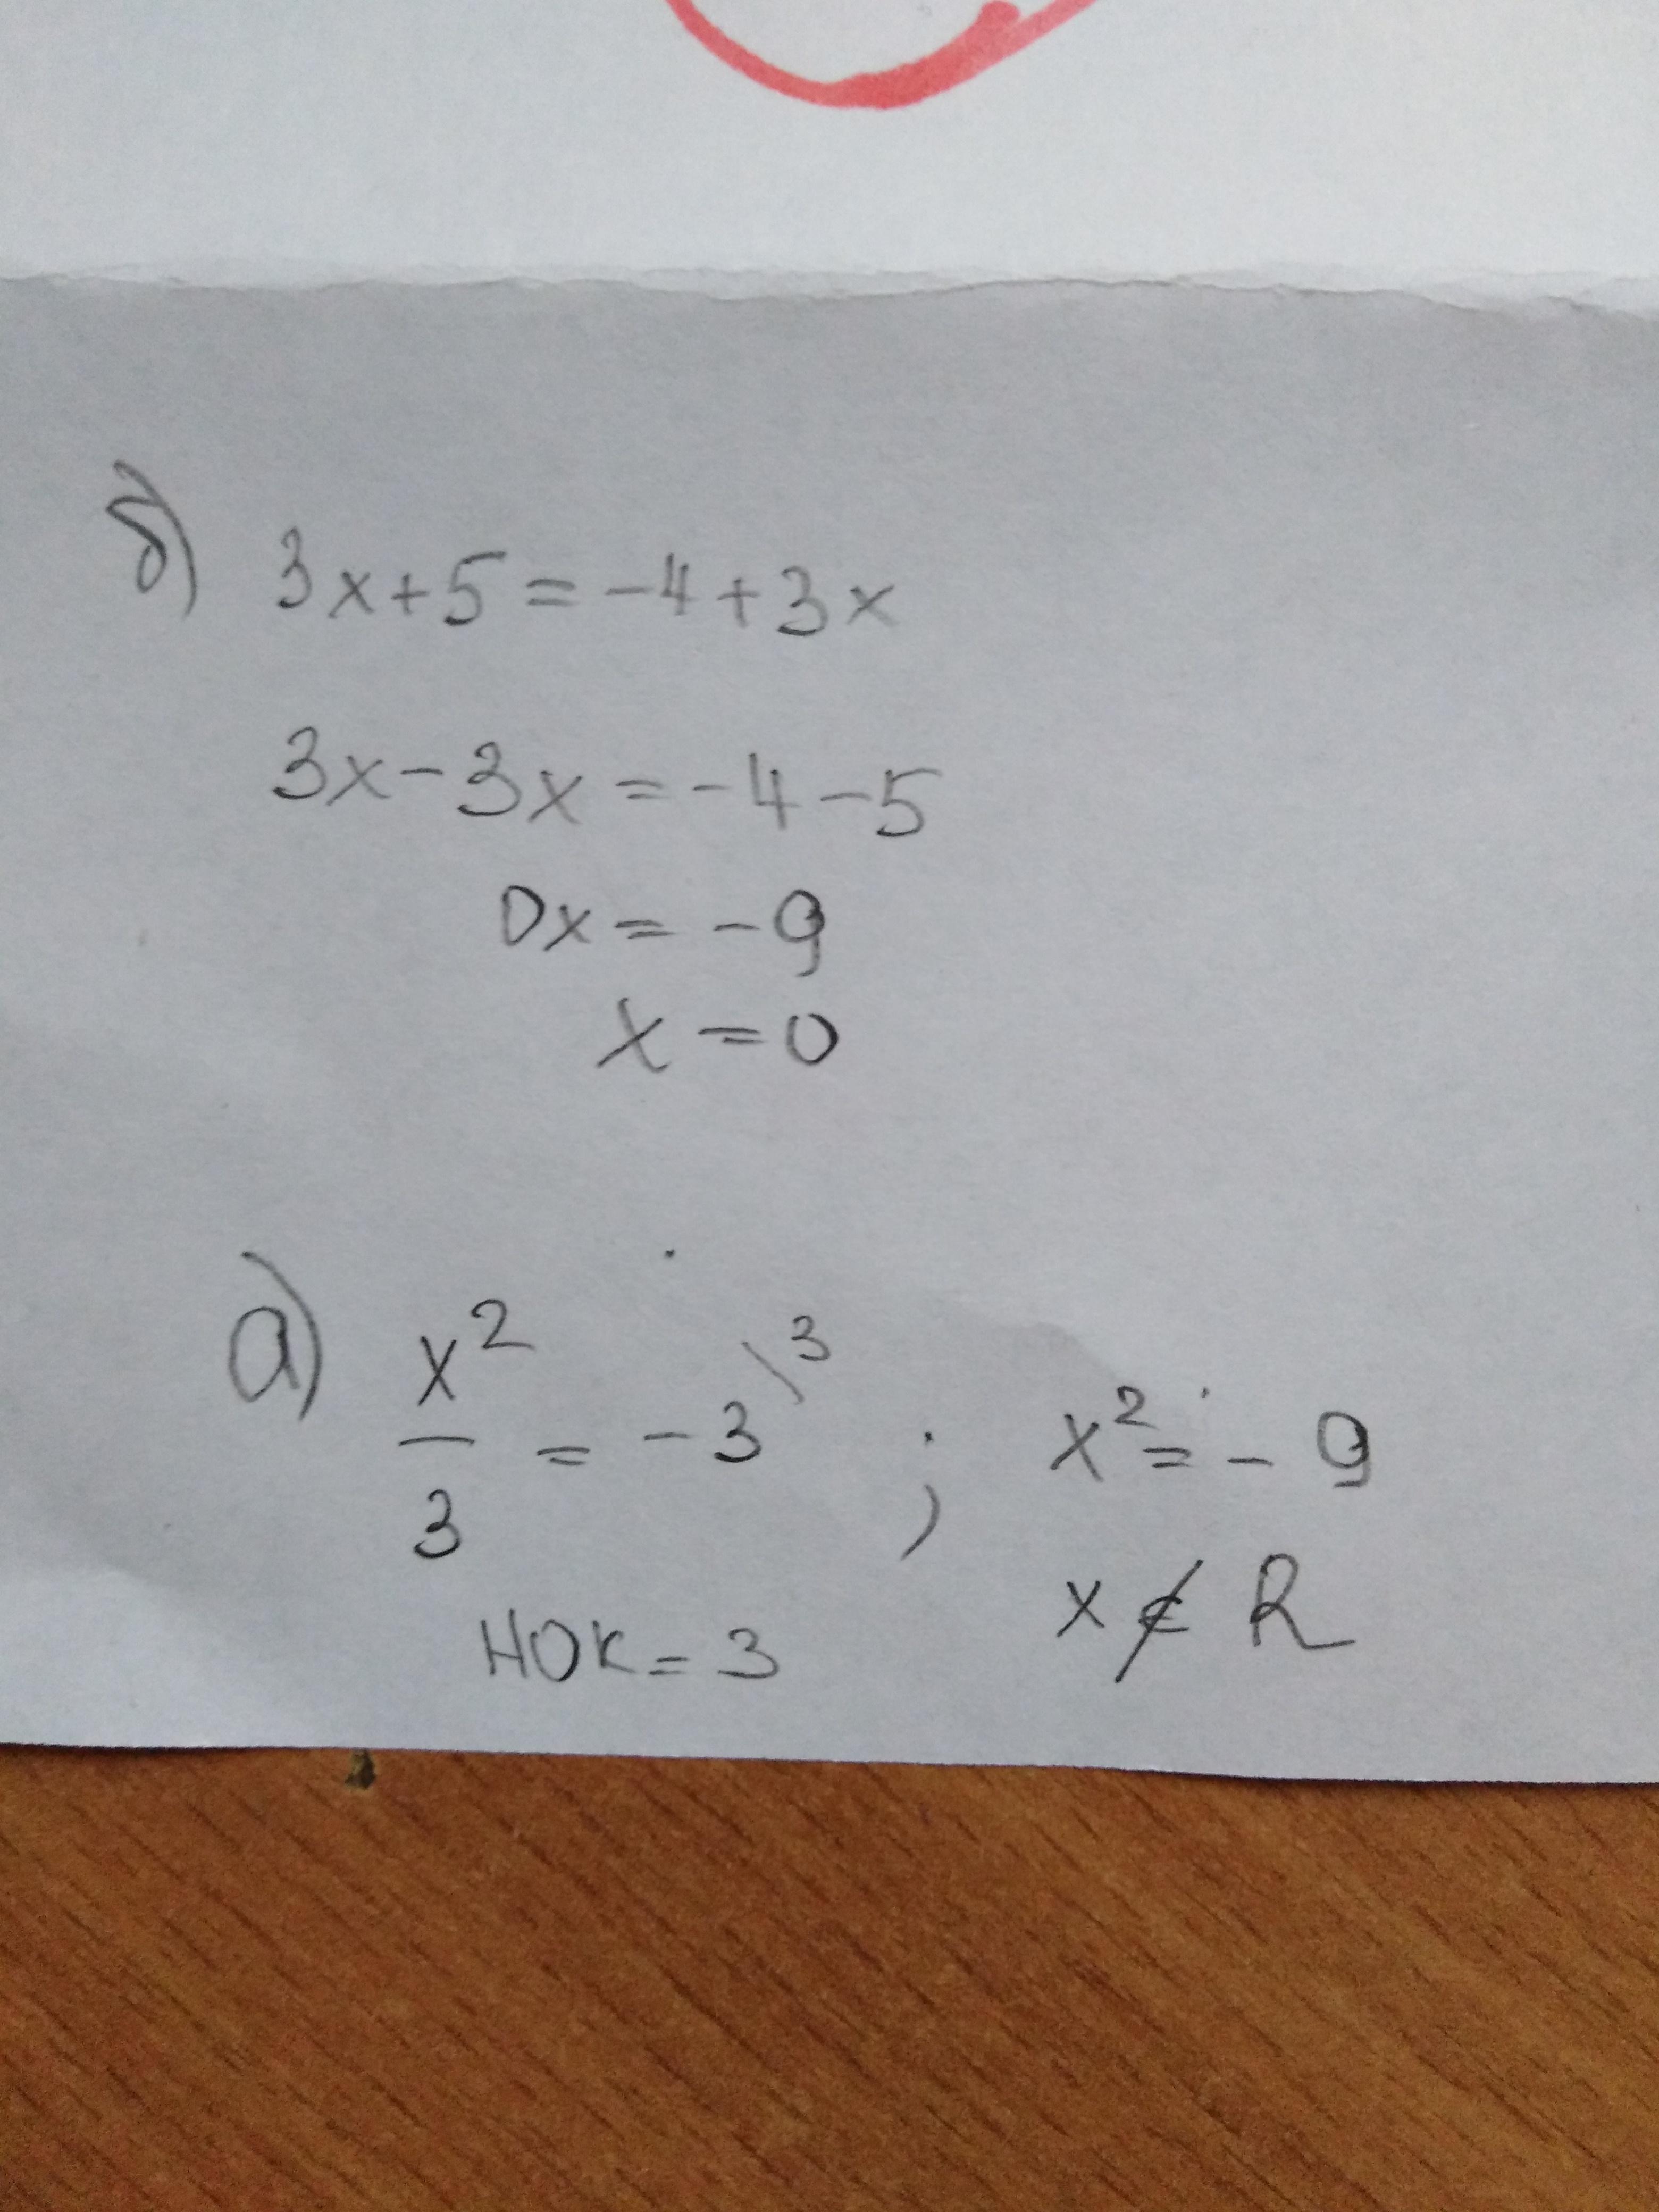 б) 3x+5=-4+3x
3x-3x=-4-5
0x=-9
x=0
а) x²/3 = -3\³ ; x²=-9
НОК=3 x∉R